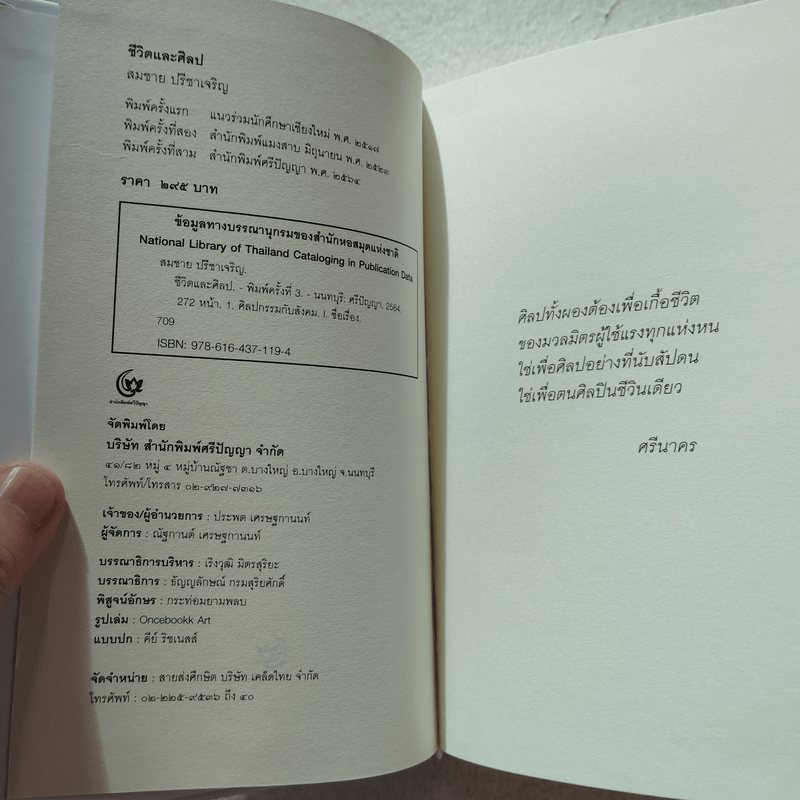 ชีวิตและศิลป
สมชาย ปรีชาเจริญ
พิมพ์ครั้งแรก แนวร่วมนักศึกษาเชียงใหม่ พ.ศ. ๒๕๑๗
พิมพ์ครั้งที่สอง สำนักพิมพ์แมงสาบ มิถุนายน พ.ศ. ๒๕๒๓
พิมพ์ครั้งที่สาม สำนักพิมพ์ศรีปัญญา พ.ศ. ๒๕๖๔
ราคา ๒๙๕ บาท
ข้อมูลทางบรรณานุกรมของสำนักหอสมุดแห่งชาติ
National Library of Thailand Cataloging in Publication Data
สมชาย ปรีชาเจริญ.
ชีวิตและศิลป. - พิมพ์ครั้งที่ 3. - นนทบุรี: ศรีปัญญา, 2564.
272 หน้า. 1. ศิลปกรรมกับสังคม. I. ชื่อเรื่อง.
709
ISBN: 978-616-437-119-4
สำนักพิมพ์ศรีปัญญา
จัดพิมพ์โดย
บริษัท สำนักพิมพ์ศรีปัญญา จำกัด
๔๑/๘๒ หมู่ ๔ หมู่บ้านณัฐชา ต.บางใหญ่ อ.บางใหญ่ จ.นนทบุรี
โทรศัพท์/โทรสาร ๐๒-๙๒๗-๗๓๑๖
เจ้าของ/ผู้อำนวยการ : ประพต เศรษฐกานนท์
ผู้จัดการ : ณัฐกานต์ เศรษฐกานนท์
บรรณาธิการบริหาร : เริงวุฒิ มิตรสุริยะ
บรรณาธิการ : ธัญญลักษณ์ กรมสุริยศักดิ์
พิสูจน์อักษร : กระท่อมยามพลบ
รูปเล่ม : Oncebookk Art
แบบปก : คีย์ ริชเนสส์
จัดจำหน่าย : สายส่งศึกษิต บริษัท เคล็ดไทย จำกัด
โทรศัพท์ : ๐๒-๒๒๕-๙๕๓๖ ถึง ๔๐
ศิลปทั้งผองต้องเพื่อเกื้อชีวิต
ของมวลมิตรผู้ใช้แรงทุกแห่งหน
ใช่เพื่อศิลปอย่างที่นับสัปดน
ใช่เพื่อตนศิลปินชีวินเดียว
ศรีนาคร